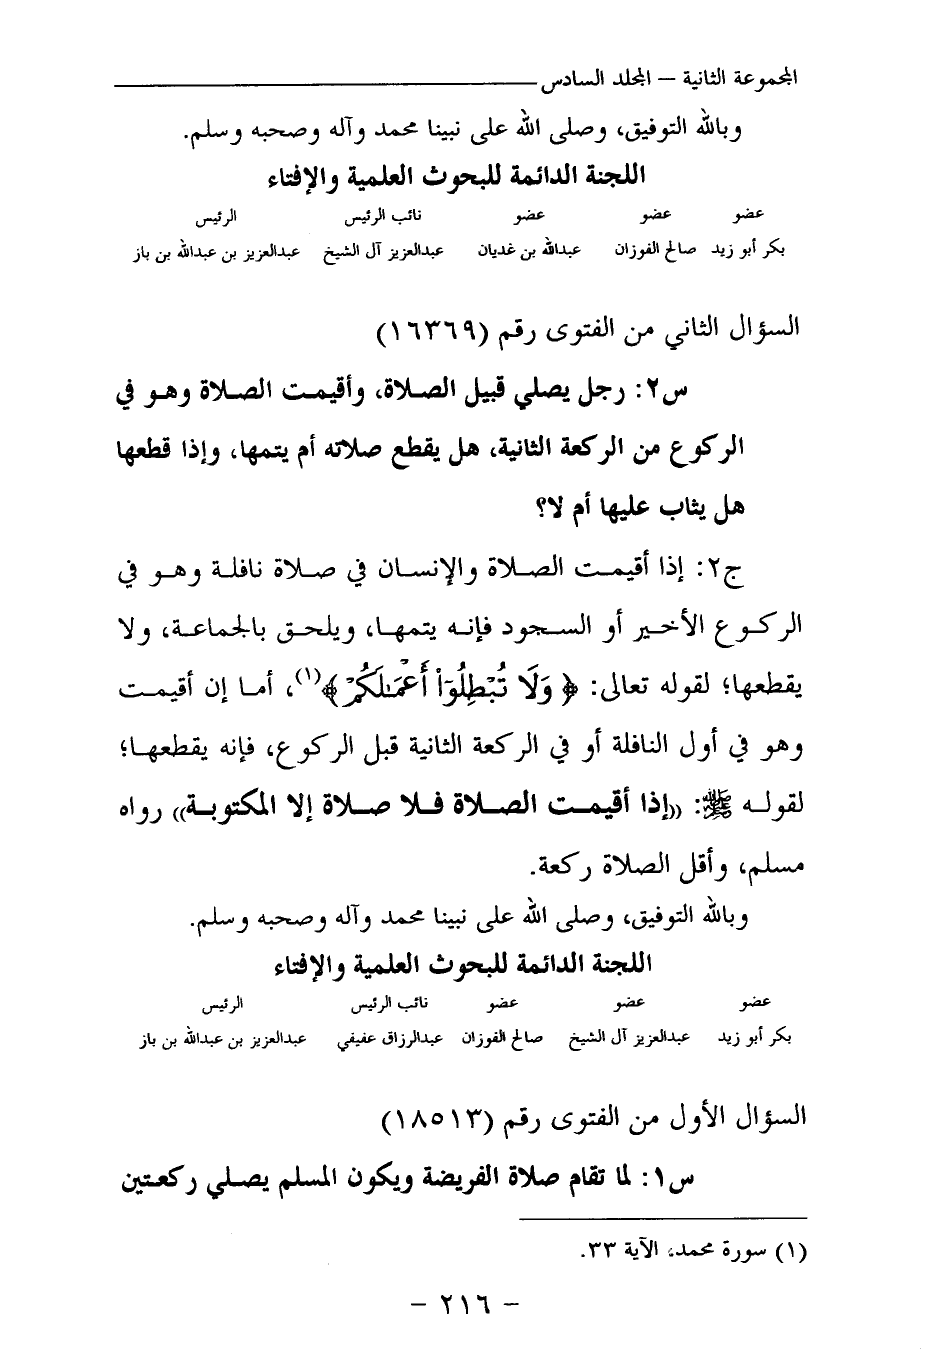 المجموعة الثانية – المجلد السادس
وبالله التوفيق، وصلى الله على نبينا محمد وآله وصحبه وسلم.
اللجنة الدائمة للبحوث العلمية والإفتاء
عضو عضو عضو نائب الرئيس الرئيس
بكر أبو زيد صالح الفوزان عبدالله بن غديان عبدالعزيز آل الشيخ عبدالعزيز بن عبدالله بن باز
السؤال الثاني من الفتوى رقم (١٦٣٦٩)
س٢: رجل يصلي قبيل الصلاة، وأقيمت الصلاة وهو في
الركوع من الركعة الثانية، هل يقطع صلاته أم يتمها، وإذا قطعها
هل يثاب عليها أم لا؟
ج٢: إذا أقيمت الصلاة والإنسان في صلاة نافلة وهو في
الركوع الأخير أو السجود فإنه يتمها، ويلحق بالجماعة، ولا
يقطعها؛ لقوله تعالى: ﴿ وَلَا تُبْطِلُوٓا۟ أَعْمَـٰلَكُمْ ﴾(١)، أما إن أقيمت
وهو في أول النافلة أو في الركعة الثانية قبل الركوع، فإنه يقطعها؛
لقوله ﷺ: «إذا أقيمت الصلاة فلا صلاة إلا المكتوبة» رواه
مسلم، وأقل الصلاة ركعة.
وبالله التوفيق، وصلى الله على نبينا محمد وآله وصحبه وسلم.
اللجنة الدائمة للبحوث العلمية والإفتاء
عضو عضو عضو نائب الرئيس الرئيس
بكر أبو زيد عبدالعزيز آل الشيخ صالح الفوزان عبدالرزاق عفيفي عبدالعزيز بن عبدالله بن باز
السؤال الأول من الفتوى رقم (١٨٥١٣)
س١: لما تقام صلاة الفريضة ويكون المسلم يصلي ركعتين
(١) سورة محمد، الآية ٣٣.
- ٢١٦ -